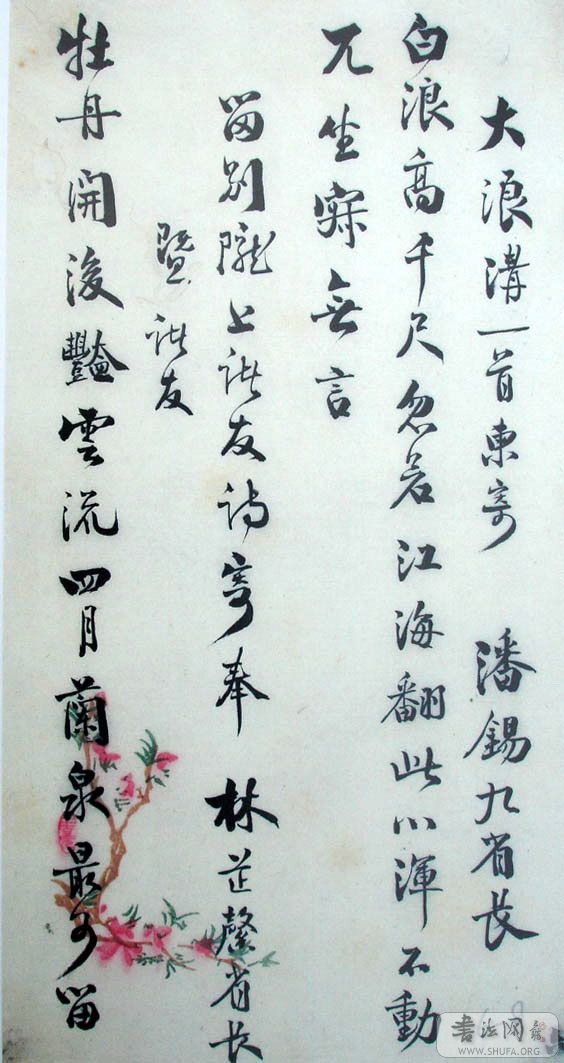 大浪溝一首東寄 潘錫九省长
白浪高千尺忽若江海翻此心渾不動
兀坐寐無言
留别隴上諸友诗寄奉 林芷馨省长
暨諸友
牡丹開後豔雲流四月蘭泉最可留
書法网
WWW.SHUFA.ORG